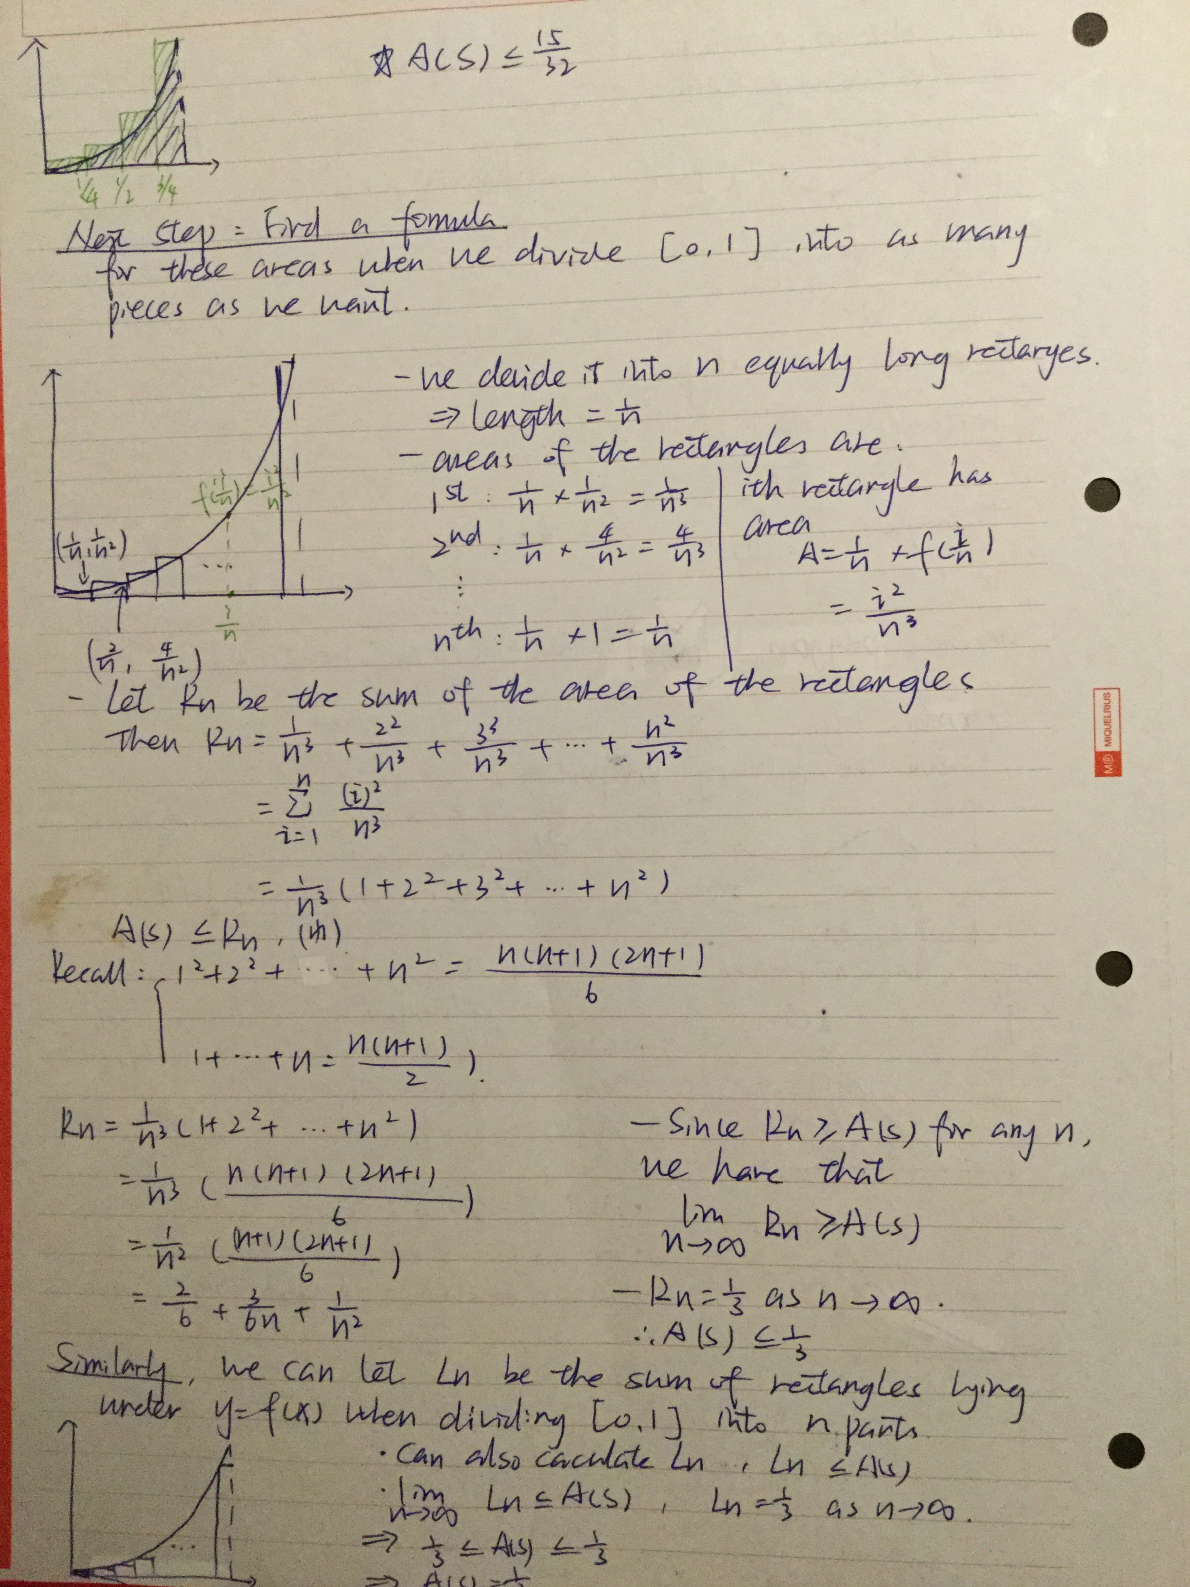 ☆ A(S) ≤ 15/32
1/4 1/2 3/4
Next step = Find a formula
for these areas when we divide [0,1] into as many
pieces as we want.
- we devide it into n equally long rectanges.
⇒ length = 1/n
- areas of the rectangles are.
1st : 1/n × 1/n² = 1/n³
2nd : 1/n × 4/n² = 4/n³
⋮
nth : 1/n × 1 = 1/n
ith rectangle has
area
A = 1/n × f(i/n)
= i²/n³
f(i/n) = i²/n²
(1/n, 1/n²)
...
i/n
1
(2/n, 4/n²)
- Let Rn be the sum of the area of the rectangles
Then Rn = 1/n³ + 2²/n³ + 3³/n³ + ... + n²/n³
= Σ i=1 n (i)²/n³
= 1/n³ (1+2²+3²+ ... + n²)
A(S) ≤ Rn ,
Recall : 1²+2²+ ... + n² = n(n+1)(2n+1)/6
1+ ... +n = n(n+1)/2 ).
Rn = 1/n³ (1+2²+ ... +n²)
= 1/n³ ( n(n+1)(2n+1)/6 )
= 1/n² ( (n+1)(2n+1)/6 )
= 2/6 + 3/6n + 1/n²
- Since Rn ≥ A(S) for any n,
we have that
lim n→∞ Rn ≥ A(S)
- Rn = 1/3 as n → ∞ .
∴ A(S) ≤ 1/3
Similarly, we can let Ln be the sum of rectangles lying
under y=f(x) when dividing [0,1] into n parts.
· Can also caculate Ln , Ln ≤ A(S)
· lim n→∞ Ln ≤ A(S) , Ln = 1/3 as n→∞.
⇒ 1/3 ≤ A(S) ≤ 1/3
⇒ A(S) = 1/
...
MIQUELRIUS